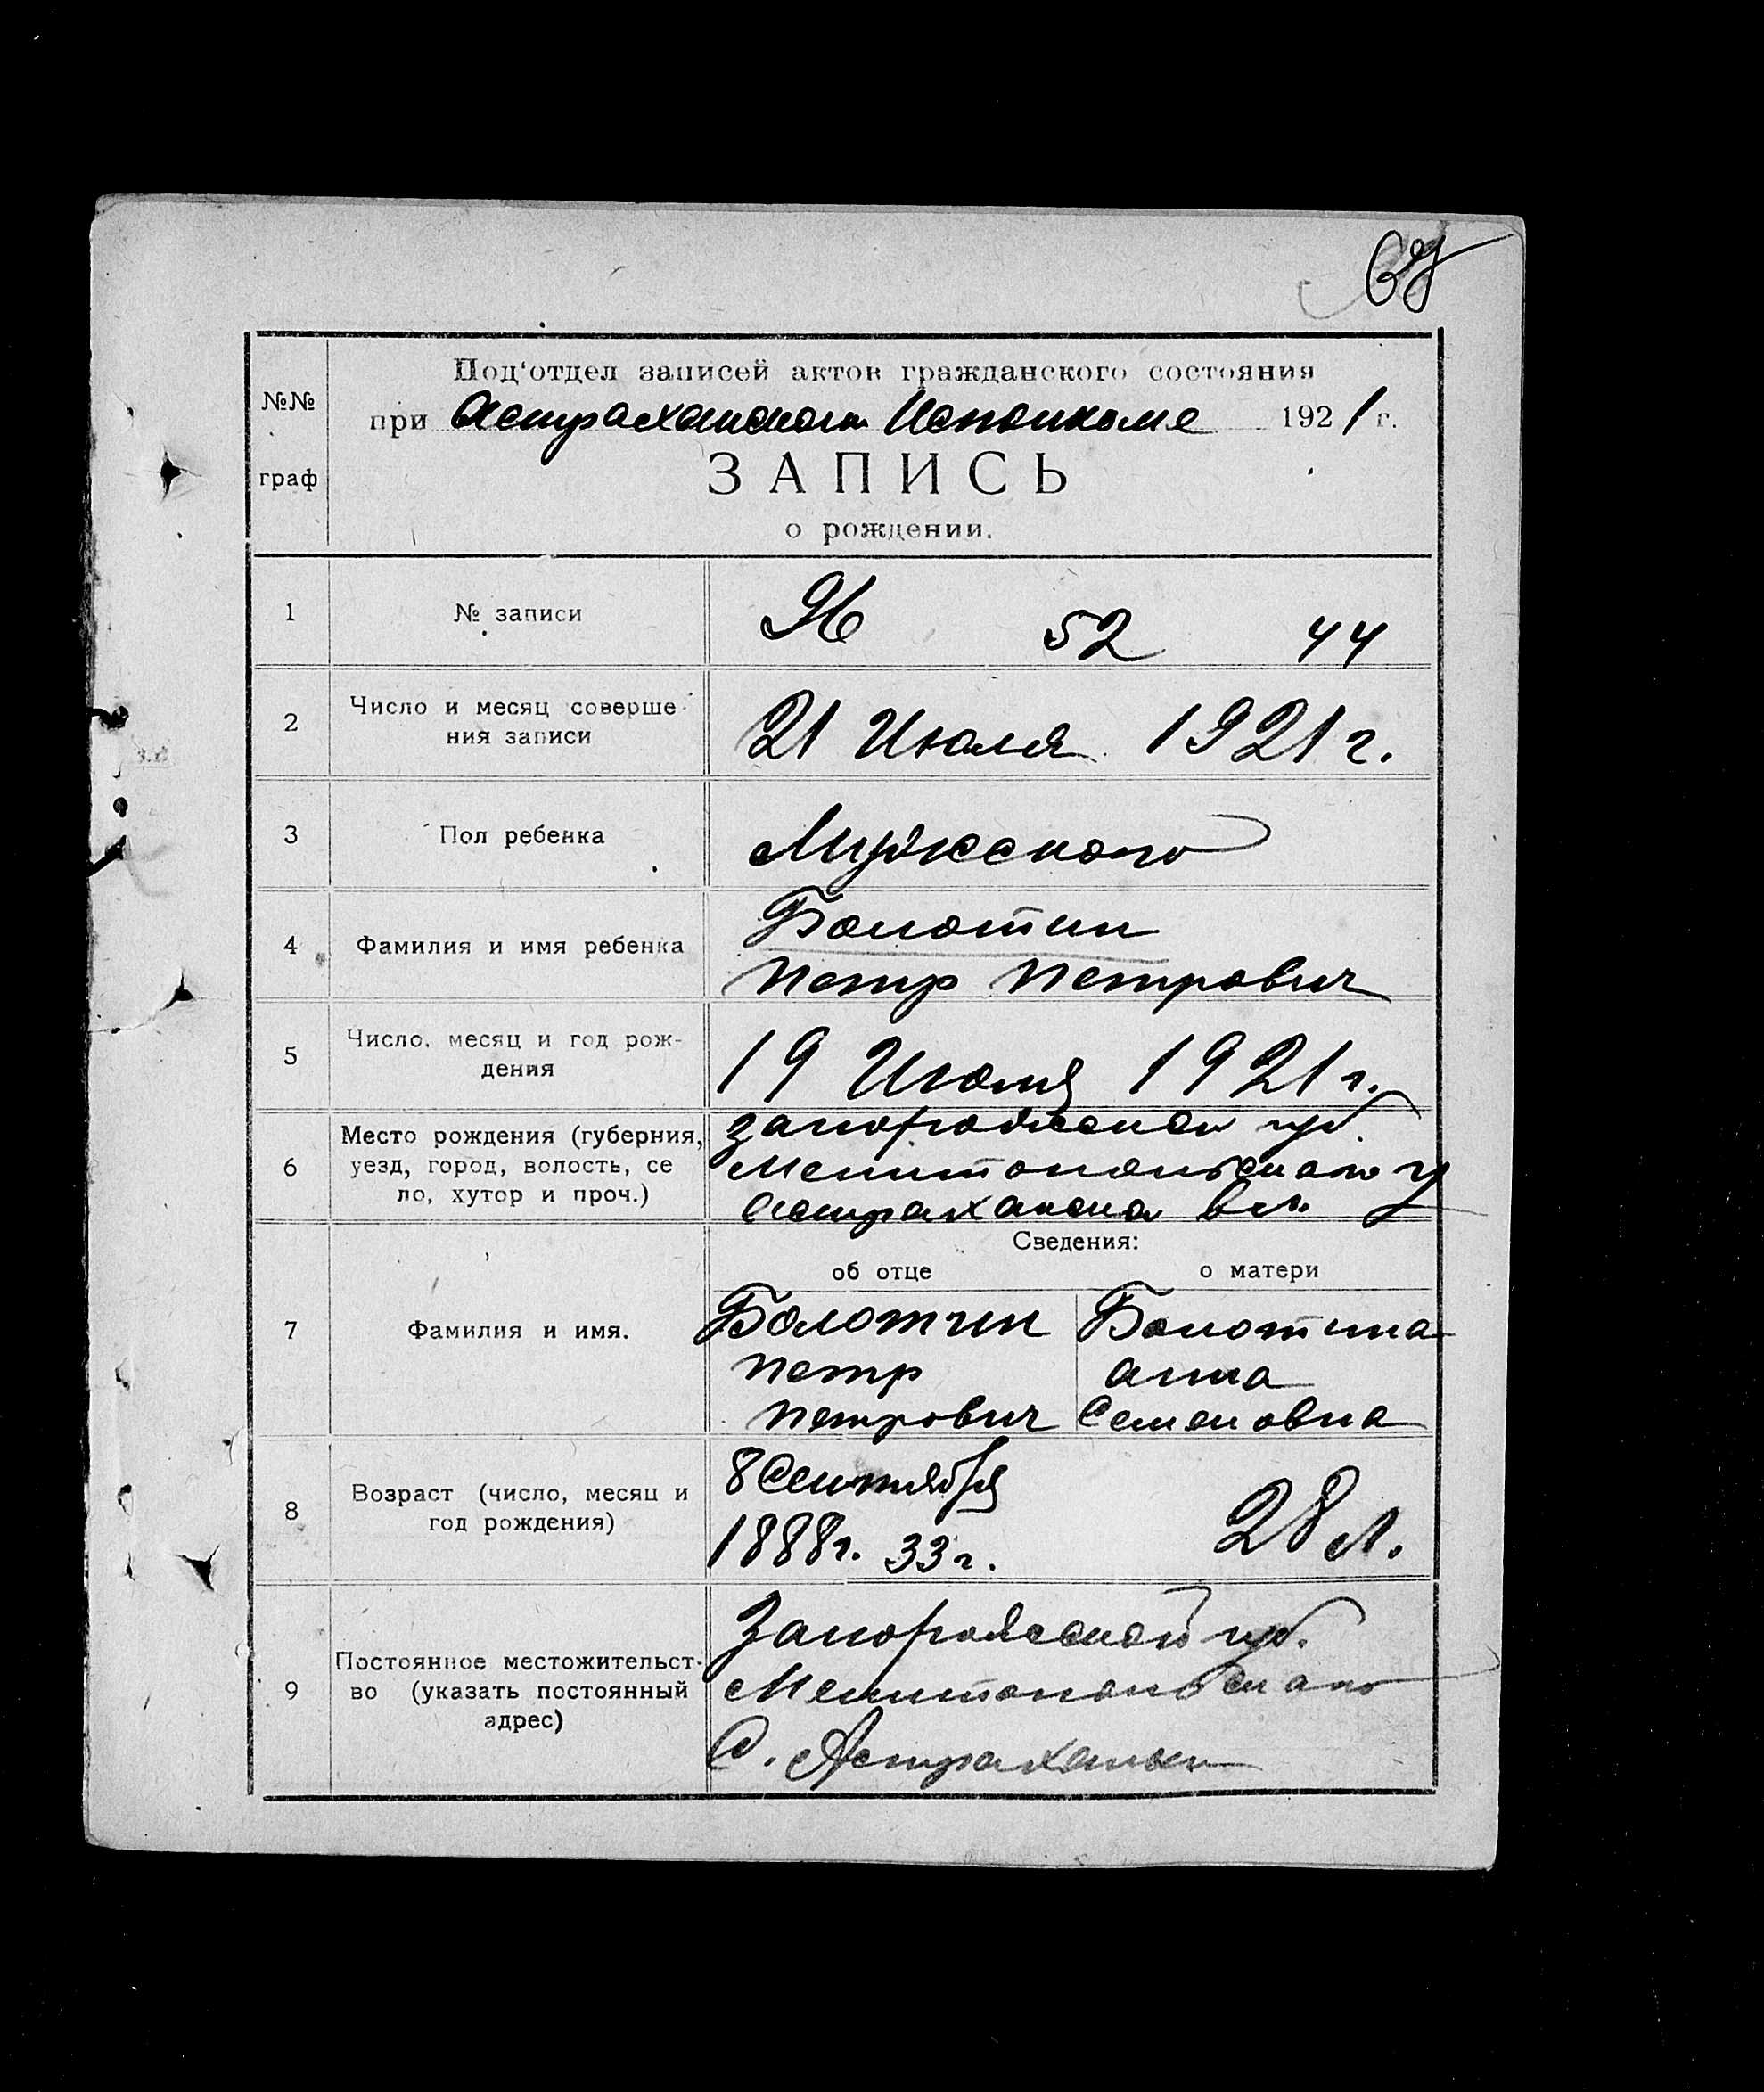 69
№№
граф
Под'отдел записей актов гражданского состояния
при Астраханском Исполкоме 1921 г.
ЗАПИСЬ
о рождении.
1 № записи 96 52 44
2 Число и месяц соверше-
ния записи
21 Июля 1921 г.
3 Пол ребенка Мужского
4 Фамилия и имя ребенка
Болотин
Петр Петрович
5 Число, месяц и год рож-
дения
19 Июля 1921 г.
6 Место рождения (губерния,
уезд, город, волость, се
ло, хутор и проч.)
Запорожской губ.
Мелитопольского у
Астраханка вл.
Сведения:
об отце о матери
7 Фамилия и имя.
Болотин
Петр
Петрович
Болотина
Анна
Семеновна
8 Возраст (число, месяц и
год рождения)
8 Сентября
1888 г. 33 г.
28 л.
9 Постоянное местожительст-
во (указать постоянный
адрес)
Запорожской губ.
Мелитопольского
С.